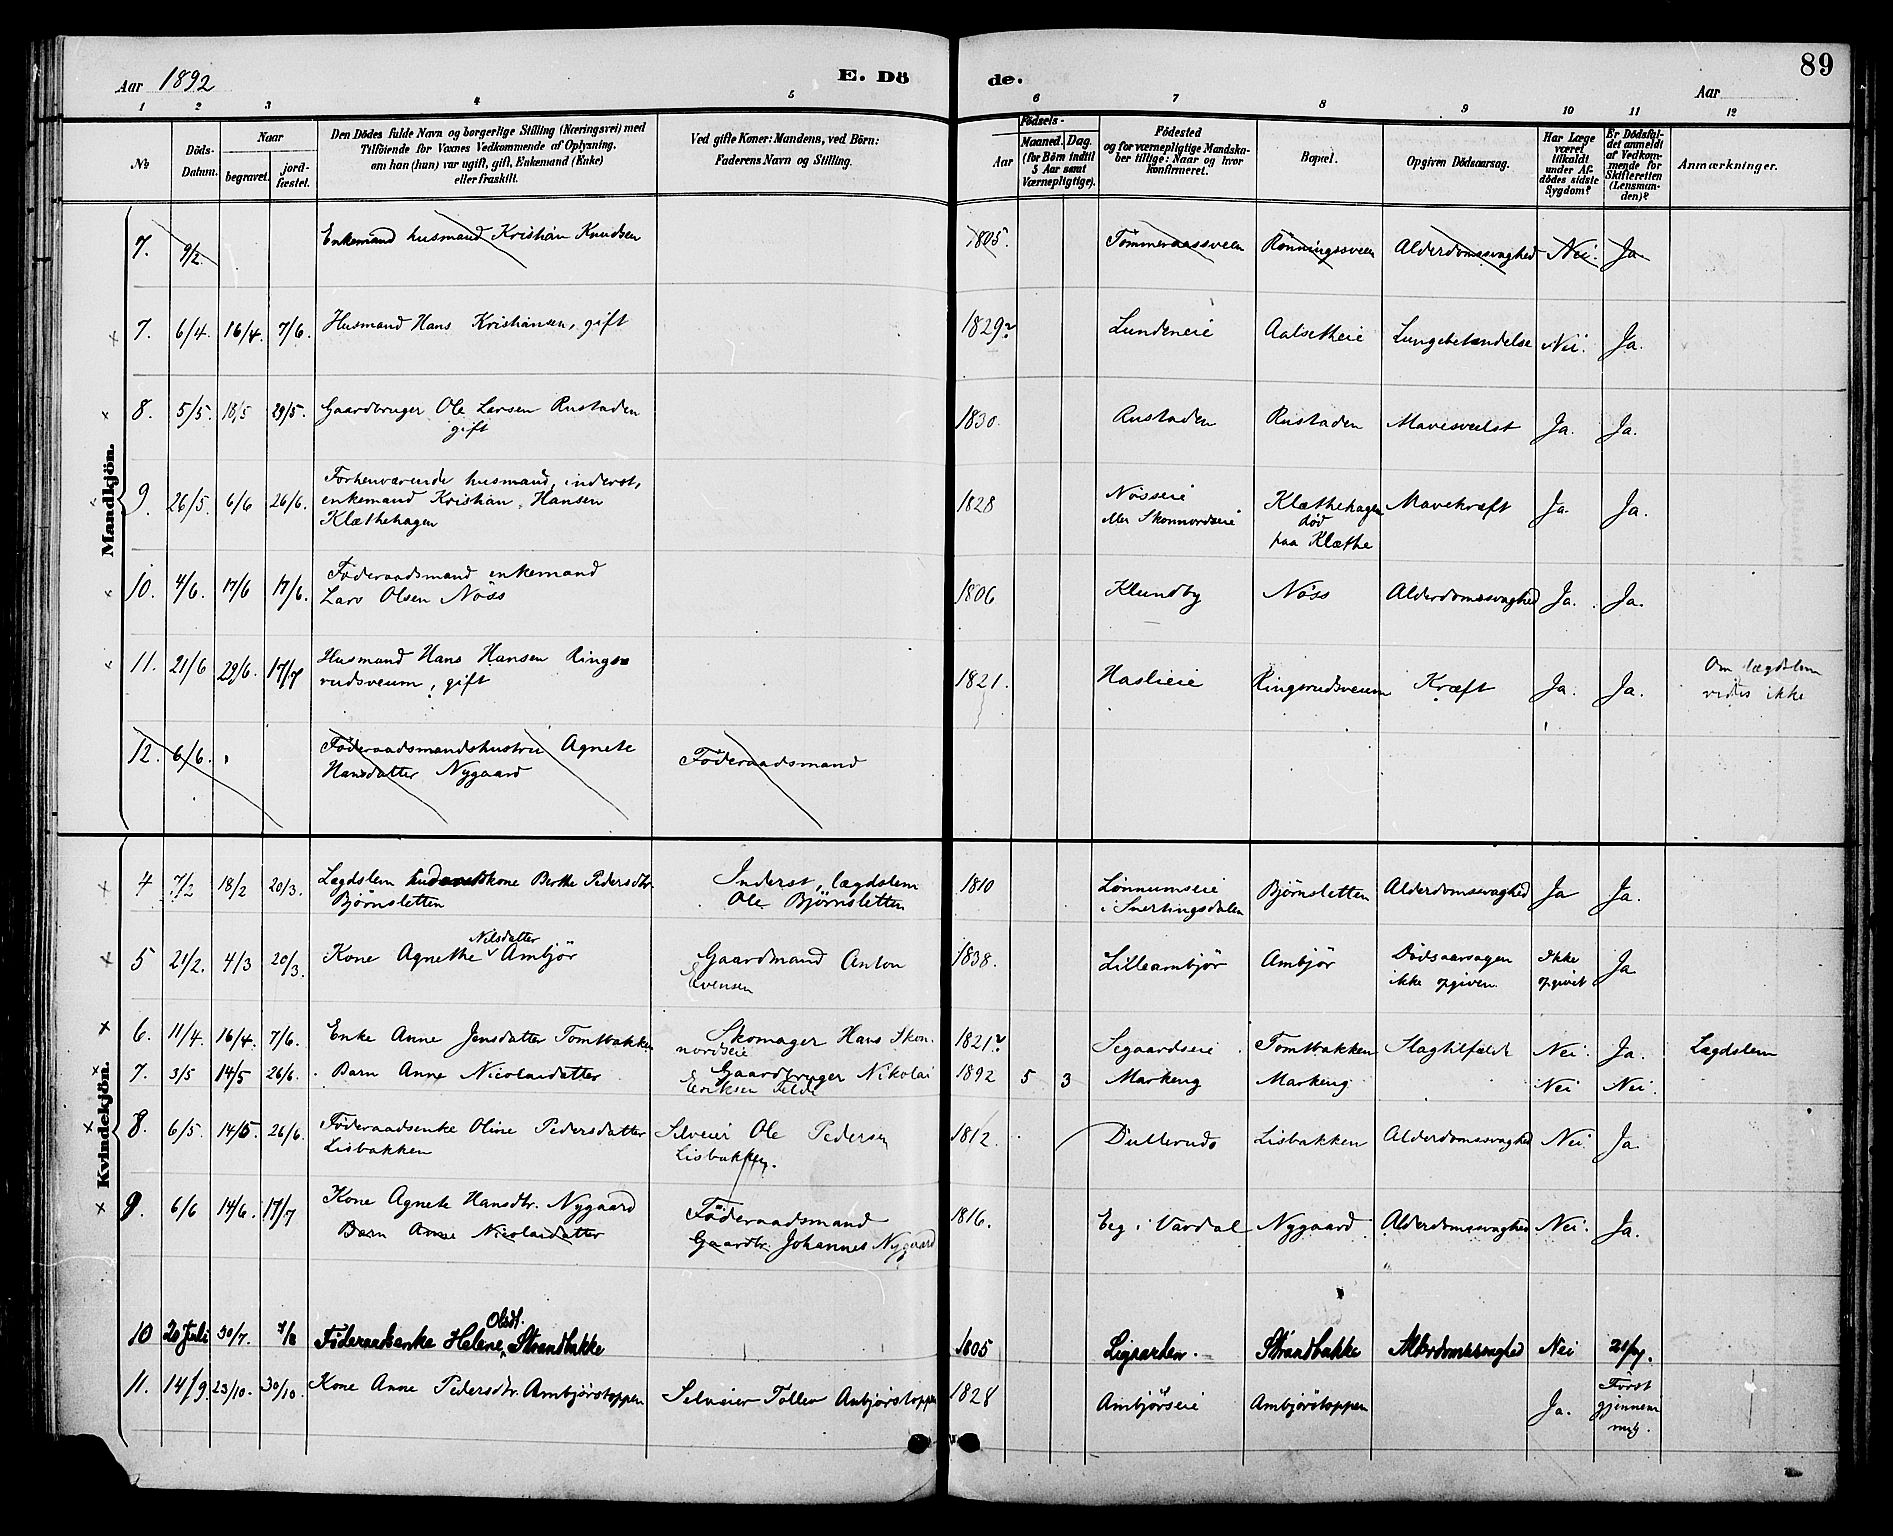 89
Aar 1892
E. Dö
de.
Aar
1 2 3 4 5 6 7 8 9 10 11 12
No
Döds-
Datum.
Naar
begravet.
jord-
fæstet.
Den Dödes fulde Navn og borgerlige Stilling (Næringsvei) med
Tilföiende for Voxnes Vedkommende af Oplysning.
om han (hun) var ugift, gift, Enkemand (Enke)
eller fraskilt.
Ved gifte Koner: Mandens, ved Börn:
Faderens Navn og Stilling.
Födsels-
Aar
Maaned. Dag.
(for Börn indtil
5 Aar samt
Værnepligtige).
Födested
og for værnepligtige Mandska-
ber tillige: Naar og hvor
konfirmeret.
Bopæl.
Opgiven Dödsaarsag.
Har Læge
været
tilkaldt
under Af-
dödes sidste
Sygdom?
Er Dödsfal-
det anmeldt
af Vedkom-
mende for
Skifteretten
(Lensman-
den)?
Anmærkninger.
Mandkjön.
7. 9/2. Enkemand husmand Kristian Knudsen 1805. Tömmeraassveen Rönningssveen Alderdomssvaghed Nei. Ja
7. 6/4. 16/4. 7/6. Husmand Hans Kristiansen, gift 1829? Lundeneie Aalsetheie Lungebetændelse Nei. Ja.
8. 5/5. 18/5 29/5. Gaardbruger Ole Larsen Rustaden 1830. Rustaden Rustaden Ja. Ja.
gift
9. 26/5. 6/6 26/6. Forhenværende husmand, inderst,
enkemand Kristian Hansen 1828 Nösseie Klæthehagen Mavekræft Ja. Ja.
Klæthehagen eller Skonnordseie död
paa Klæthe
10. 4/6. 17/6 17/6. Föderaadsmand enkemand
Lars Olsen Nöss 1806 Klundby Nöss Alderdomssvaghed Ja. Ja.
11. 21/6 29/6. 17/7 Husmand Hans Hansen Rings-
rudsveum, gift 1821. Haslieie Ringsrudsveum Kræft Ja. Ja. Om lægdslem
vides ikke
12. 6/6. Föderaadsmandshustru Agnete
Hansdatter Nygaard Föderaadsmand
Kvindekjön.
4 7/2 18/2 20/3. Lægdslem Berthe Pedersdtr. Inderst, lægdslem 1810 Lönnumseie Björnsletten Alderdomssvaghed Ja Ja.
Bjørnsletten Ole Bjørnsletten i Snertingsdalen
5 21/2. 4/3 20/3. Kone Agnethe Nilsdatter Ambjör Gaardmand Anton 1838. Lilleambjör Ambjör Dödsaarsagen Ikke Ja
Evensen ikke opgiven opgivet
6. 11/4. 16/4. 7/6. Enke Anne Jensdatter Tomtbakken Skomager Hans Skon- 1821? Segaardseie Tomtbakken Slagtilfælde Nei. Ja. Lægdslem
nordseie
7. 3/5 14/5 26/6. Barn Anne Nicolaidatter Gaardbruger Nikolai 1892 5 3 Markeng Markeng Nei Nei.
Eriksen
8. 6/5. 14/5. 26/6. Föderaadsenke Oline Pedersdatter Selveier Ole Pedersen 1812. Dullerud Lisbakken Alderdomssvaghed Nei. Ja.
Lisbakken Lisbakken.
9. 6/6 14/6. 17/7 Kone Agnete Hansdtr. Nygaard Föderaadsmand 1816. Eeg i Vardal Nygaard Alderdomssvaghed Nei. Ja.
Barn Anne Nicolaidatter Gaardbr. Johannes Nygaard
10 20 Juli 30/7. 7/8 Föderaadsenke Helene Olsdt. Strandbakke 1805 Strandbakke Alderdomssvaghed Nei
11. 14/9. 23/10. 30/10. Kone Anne Pedersdtr. Ambjörstoppen Selveier Tollev Anbjörstoppen 1828 Ambjörseie Ambjörstoppen Ja. Först
gjennem
mig.